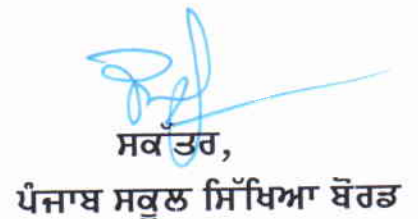 ਸਕੱਤਰ,
ਪੰਜਾਬ ਸਕੂਲ ਸਿੱਖਿਆ ਬੋਰਡ